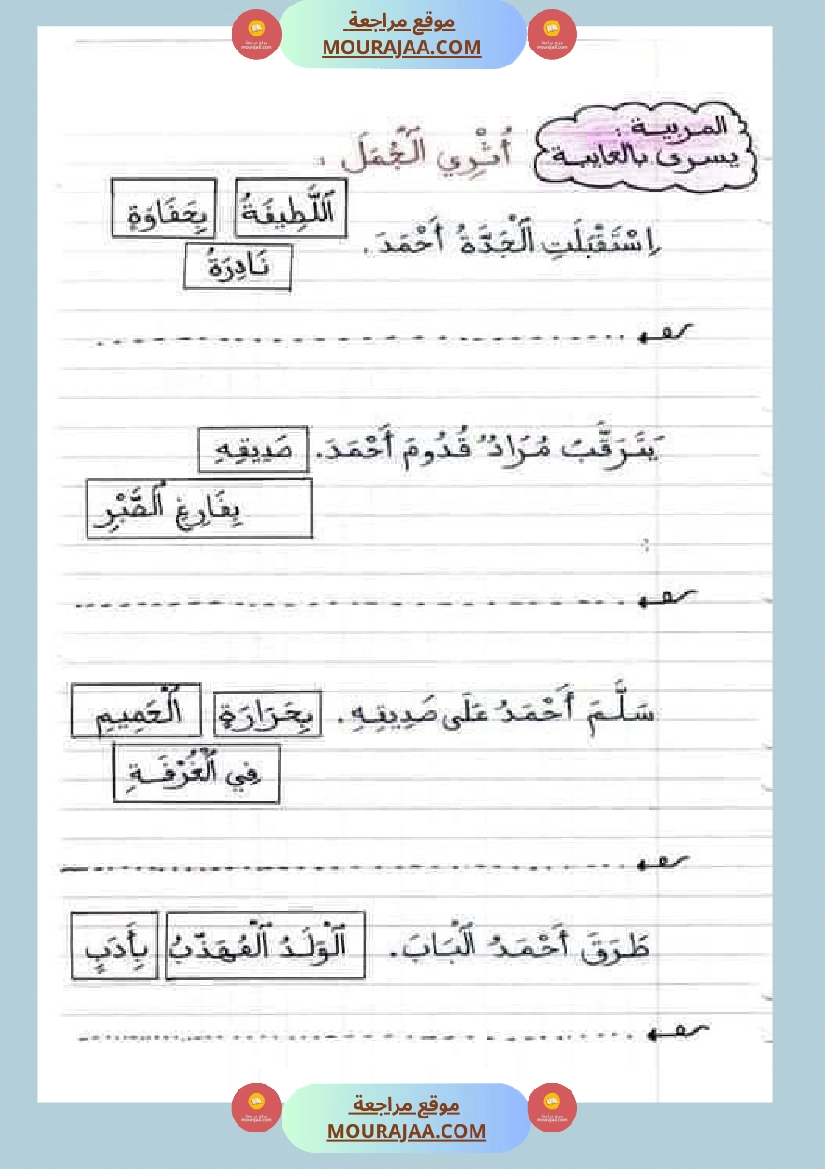 موقع مراجعة
MOURAJAA.COM
المربية :
يسرى بالعايبة
أُثْرِي ٱلْجُمَلَ :
ٱللَّطِيفَةُ
بِحَفَاوَةٍ
اِسْتَقْبَلَتِ ٱلْجَدَّةُ أَحْمَدَ.
نَادِرَةُ
يَتَرَقَّبُ مُرَادٌ قُدُومَ أَحْمَدَ.
صَدِيقِهِ
بِفَارِغِ ٱلصَّبْرِ
سَلَّمَ أَحْمَدُ عَلَى صَدِيقِهِ.
بِحَرَارَةٍ
ٱلْحَمِيمِ
فِي ٱلْغُرْفَةِ
طَرَقَ أَحْمَدُ ٱلْبَابَ.
ٱلْوَلَدُ ٱلْمُهَذَّبُ
بِأَدَبٍ
موقع مراجعة
MOURAJAA.COM